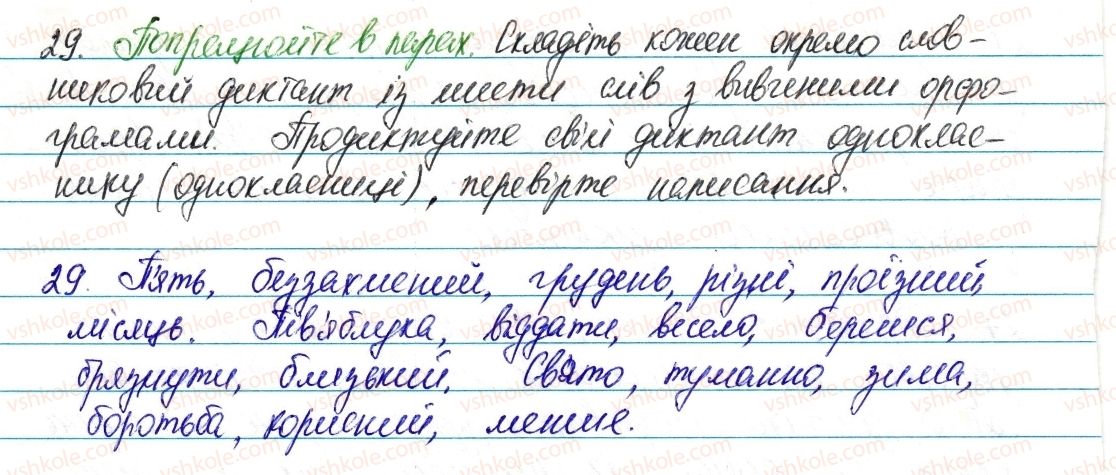 29. Попрацюйте в парах. Складіть кожен окремо слов-
никовий диктант із шести слів з вивченими орфо-
грамами. Продиктуйте свій диктант одноклас-
нику (однокласниці), перевірте написання.
29. П'ять, беззахисний, грудень, різні, проїзний,
місяць. Пів'яблука, віддати, весело, берешся,
брязнути, близький. Свято, туманно, зима,
боротьба, корисний, менше.